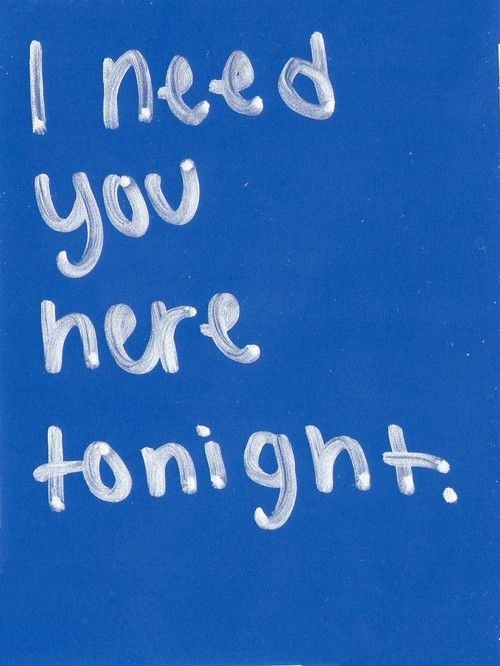 I need
you
here
tonight.